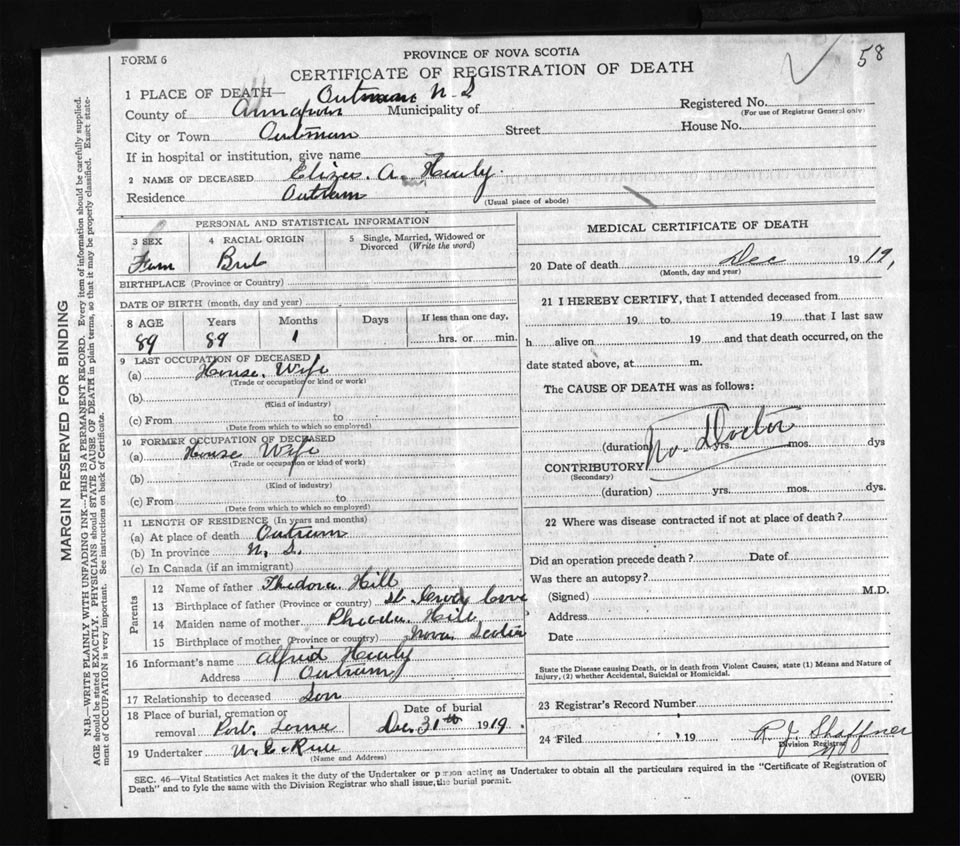 58
FORM 6
PROVINCE OF NOVA SCOTIA
CERTIFICATE OF REGISTRATION OF DEATH
1 PLACE OF DEATH— Outram N-S
County of Municipality of
Registered No.
(For use of Registrar General only)
City or Town Street House No.
If in hospital or institution, give name
2 NAME OF DECEASED A.
Residence Outram (Usual place of abode)
PERSONAL AND STATISTICAL INFORMATION
3 SEX 4 RACIAL ORIGIN 5 Single, Married, Widowed or Divorced (Write the word)
Fem
BIRTHPLACE (Province or Country)
DATE OF BIRTH (month, day and year)
8 AGE Years Months Days If less than one day,
89 89 1 hrs. or min.
9 LAST OCCUPATION OF DECEASED
(a) House Wife
(Trade or occupation or kind or work)
(b)
(Kind of industry)
(c) From to
(Date from which to which so employed)
10 FORMER OCCUPATION OF DECEASED
(a) House Wife
(Trade or occupation or kind of work)
(b)
(Kind of industry)
(c) From to
(Date from which to which so employed)
11 LENGTH OF RESIDENCE (In years and months)
(a) At place of death Outram
(b) In province N. S.
(c) In Canada (if an immigrant)
Parents
12 Name of father Hill
13 Birthplace of father (Province or country) Cove
14 Maiden name of mother Hill
15 Birthplace of mother (Province or country) Nova Scotia
16 Informant's name Alfred
Address Outram
17 Relationship to deceased Son
18 Place of burial, cremation or removal Port Lorne
Date of burial Dec 31th 1919.
19 Undertaker
(Name and Address)
MEDICAL CERTIFICATE OF DEATH
20 Date of death Dec 1919,
(Month, day and year)
21 I HEREBY CERTIFY, that I attended deceased from
19 to 19 that I last saw
h alive on 19 and that death occurred, on the
date stated above, at m.
The CAUSE OF DEATH was as follows:
No. Doctor
(duration) yrs. mos. dys
CONTRIBUTORY
(Secondary)
(duration) yrs. mos. dys.
22 Where was disease contracted if not at place of death?
Did an operation precede death? Date of
Was there an autopsy?
(Signed) M.D.
Address
Date
State the Disease causing Death, or in death from Violent Causes, state (1) Means and Nature of
Injury, (2) whether Accidental, Suicidal or Homicidal.
23 Registrar's Record Number
24 Filed 19 R. J. Shaffner
Division Registrar
SEC. 46—Vital Statistics Act makes it the duty of the Undertaker or person acting as Undertaker to obtain all the particulars required in the "Certificate of Registration of
Death" and to fyle the same with the Division Registrar who shall issue, the burial permit.
(OVER)
MARGIN RESERVED FOR BINDING
N.B.—WRITE PLAINLY WITH UNFADING INK—THIS IS A PERMANENT RECORD. Every item of information should be carefully supplied.
AGE should be stated EXACTLY. PHYSICIANS should STATE CAUSE OF DEATH in plain terms, so that it may be properly classified. Exact state-
ment of OCCUPATION is very important. See instructions on back of Certificate.